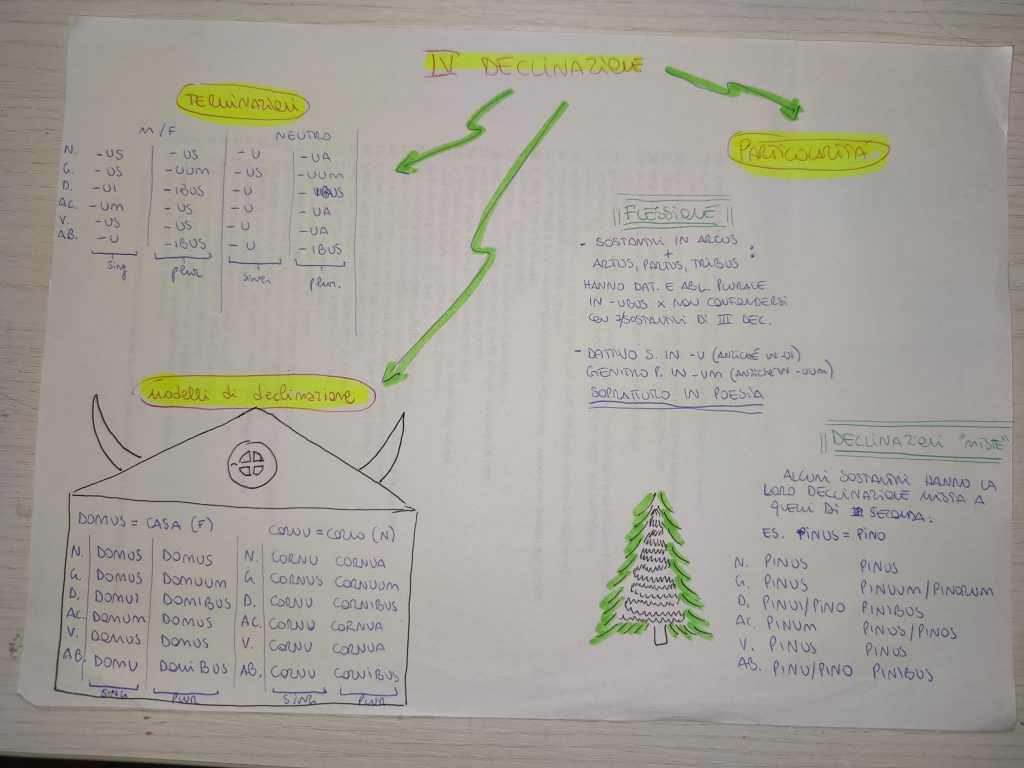 IV DECLINAZIONE
TERMINAZIONI
M/F NEUTRO
N. -US -US -U -UA
G. -US -UUM -US -UUM
D. -UI -IBUS -U -IBUS
AC. -UM -US -U -UA
V. -US -US -U -UA
AB. -U -IBUS -U -IBUS
sing plur plur.
PARTICOLARITÀ
FLESSIONE
- SOSTANTIVI IN ARCUS
+
ARTUS, PARTUS, TRIBUS :
HANNO DAT. E ABL. PLURALE
IN -UBUS X NON CONFONDERSI
CON SOSTANTIVI DI III DEC.
- DATIVO S. IN -U (ANZICHÉ IN -UI)
GENITIVO P. IN -UM (ANZICHÉ IN -UUM)
SOPRATTUTTO IN POESIA
modelli di declinazione
DOMUS = CASA (F)
N. DOMUS DOMUS
G. DOMUS DOMUUM
D. DOMUI DOMIBUS
AC. DOMUM DOMUS
V. DOMUS DOMUS
AB. DOMU DOMIBUS
SING PLUR
CORNU = CORNO (N)
N. CORNU CORNUA
G. CORNUS CORNUUM
D. CORNU CORNIBUS
AC. CORNU CORNUA
V. CORNU CORNUA
AB. CORNU CORNIBUS
SING PLUR
DECLINAZIONI "MISTE"
ALCUNI SOSTANTIVI HANNO LA
LORO DECLINAZIONE MISTA A
QUELLI DI SECONDA.
ES. PINUS = PINO
N. PINUS PINUS
G. PINUS PINUUM/PINORUM
D. PINUI/PINO PINIBUS
AC. PINUM PINUS/PINOS
V. PINUS PINUS
AB. PINU/PINO PINIBUS